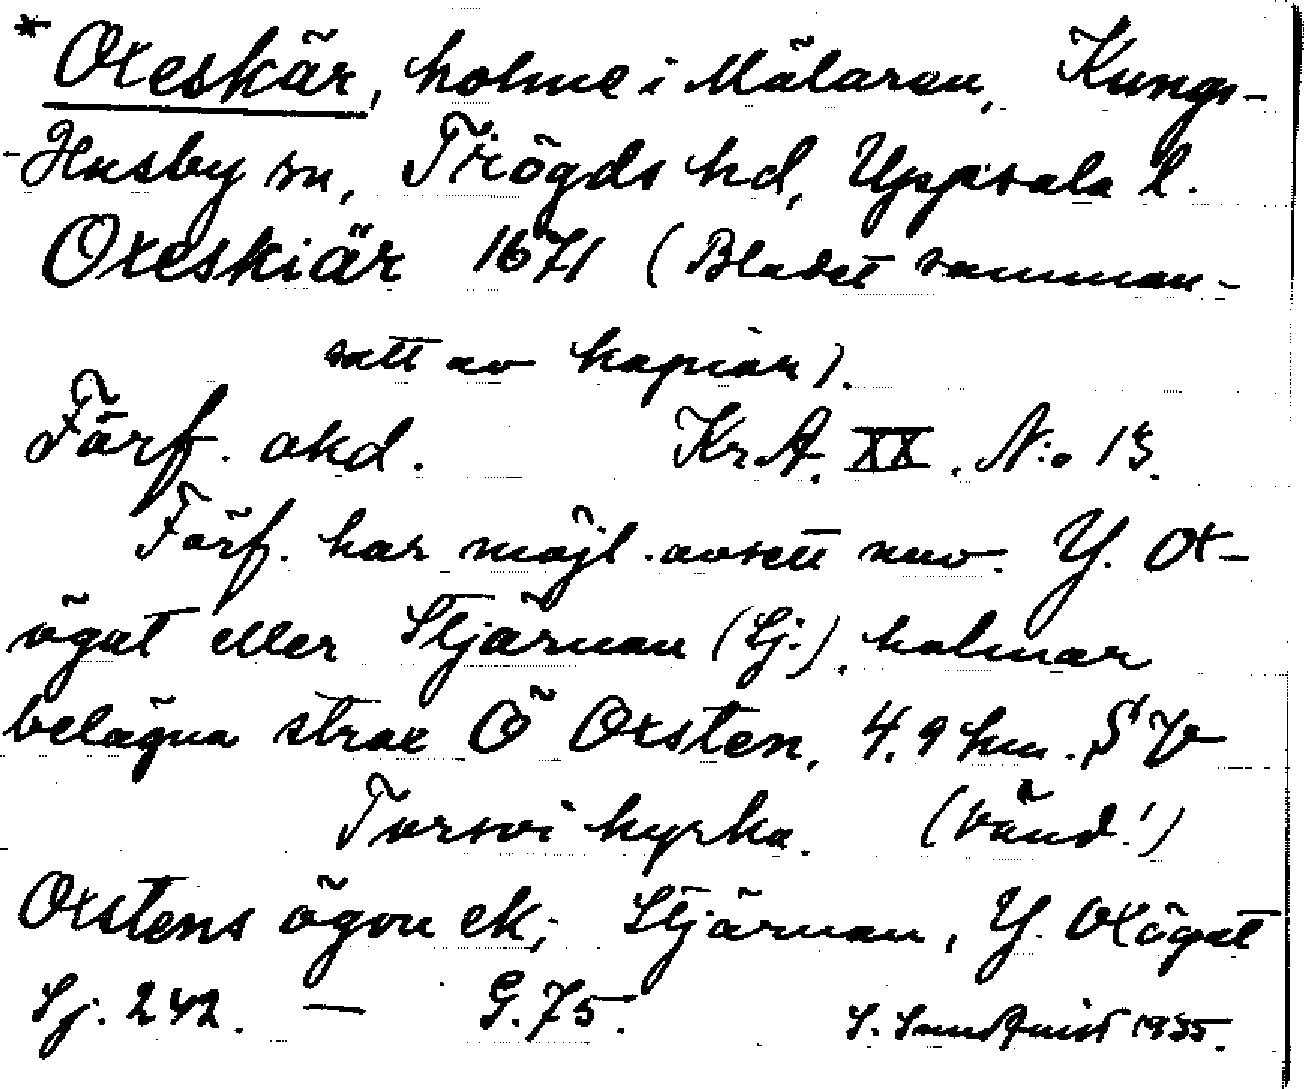 * Oxeskär, holme i Mälaren, Kungs-
-Husby sn, Trögds hd, Uppsala l.
Oxeskiär 1671 (Bladet samman-
satt av kopior).
Förf. okd. Kr.A. XX. N:o 13.
Förf. har möjl. avsett nuv. Y. Ox-
ögat eller Stjärnan (Sj.), holmar
belägna strax Ö Oxsten, 4,9 km. SV
Torsvi kyrka. (Vänd!)
Oxstens ögon ek; Stjärnan, Y. Oxögat
Sj. 242. — G. 75. S. Sundquist 1935.